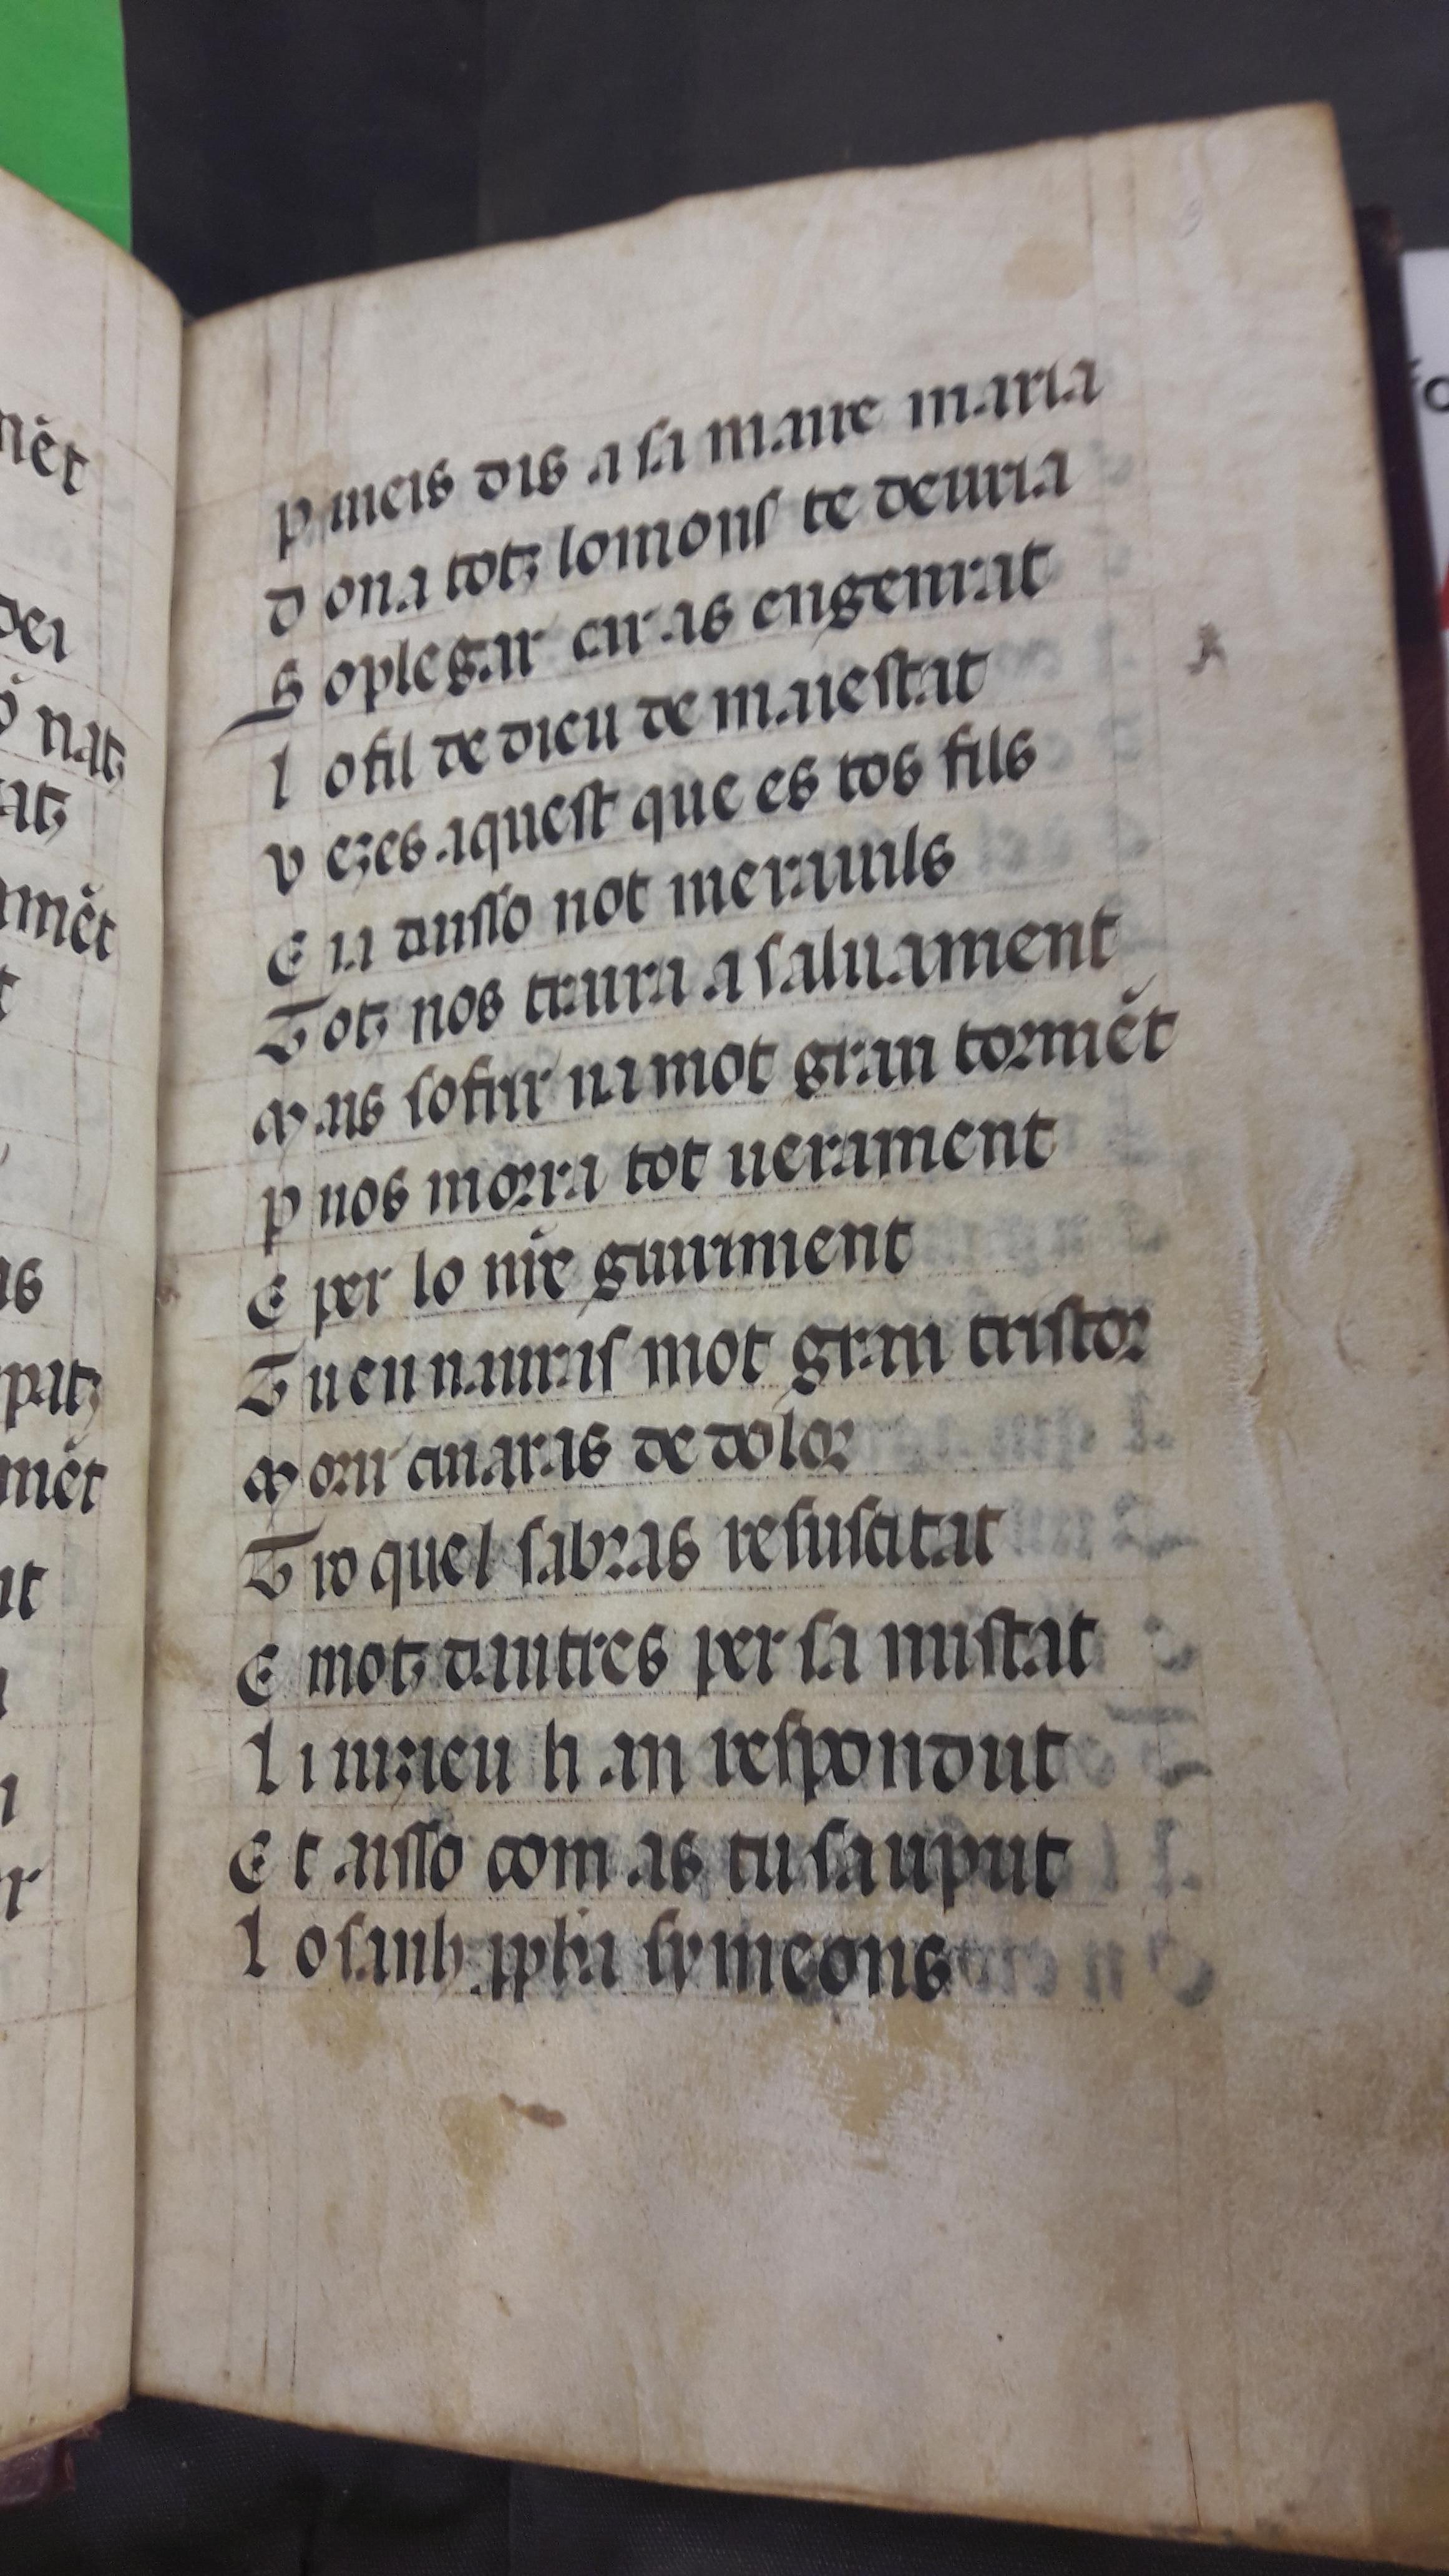 nēt
dei
natz
atz
amēt
t
as
patz
mēt
it
r
p meis dis a sa maire maria
d ona totz lo mons te deuria
S oplegar car as engenrat
l o fil de dieu de maiestat
v ezes aquest que es tos fils
E n aisso not merauils
T otz nos traira a saluament
M as sofrir na mot gran tormēt
p nos morra tot uerament
E per lo nr̄e guariment
T u en nauras mot gran tristor
M orir cuiaras de dolor
T ro quel sabras resuscitat
E motz dautres per sa mistat
l i iuzieu li an respondut
E t aisso com as tu sauput
l o sanh ppha symeons